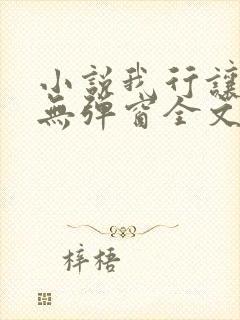 小說我行讓
無彈窗全文
梓梧